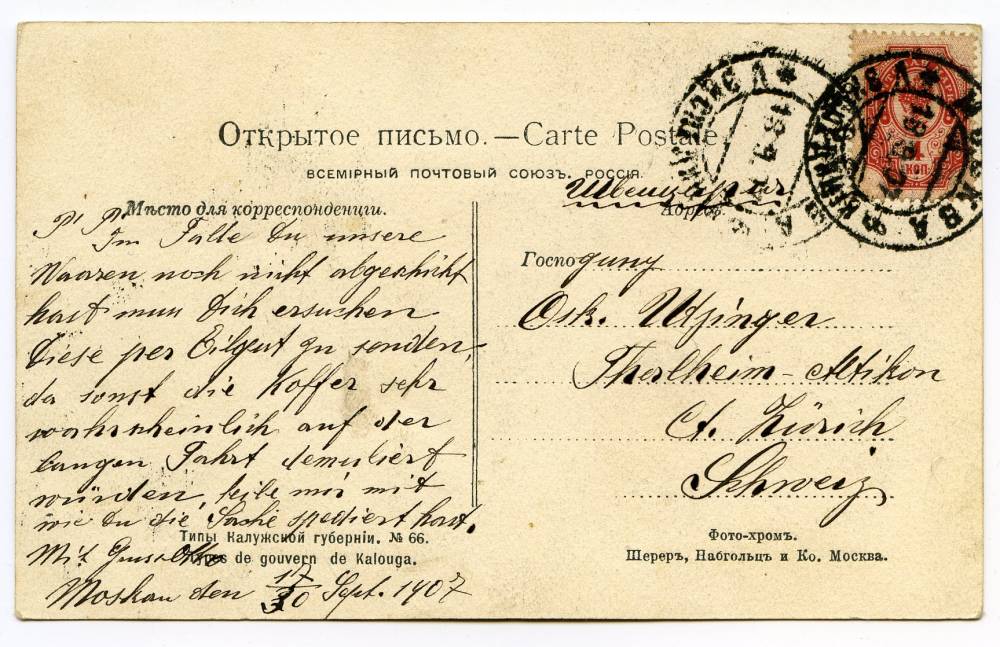 Открытое письмо.—Carte Postale.
ВСЕМІРНЫЙ ПОЧТОВЫЙ СОЮЗЪ. РОССІЯ.
Швейцарія
Мѣсто для корреспонденціи.
P. P.
Im Falle Du unsere
Waaren noch nicht abgeschickt
hast muss Dich ersuchen
diese per Eilgut zu senden,
da sonst die Koffer sehr
wahrscheinlich auf der
langen Fahrt demuliert
würden, teile mir mit
wie Du die Sache spediert hast.
Mit Gruss
Moskau den 17/30 Sept. 1907
Типы Калужской губерніи. № 66.
Types de gouvern de Kalouga.
Адресъ.
Господину
Osk. Utzinger
Thalheim-Altikon
Ct. Zürich
Schweiz
Фото-хромъ.
Шереръ, Набгольцъ и Ко. Москва.
4
КОП.
МОСКВА